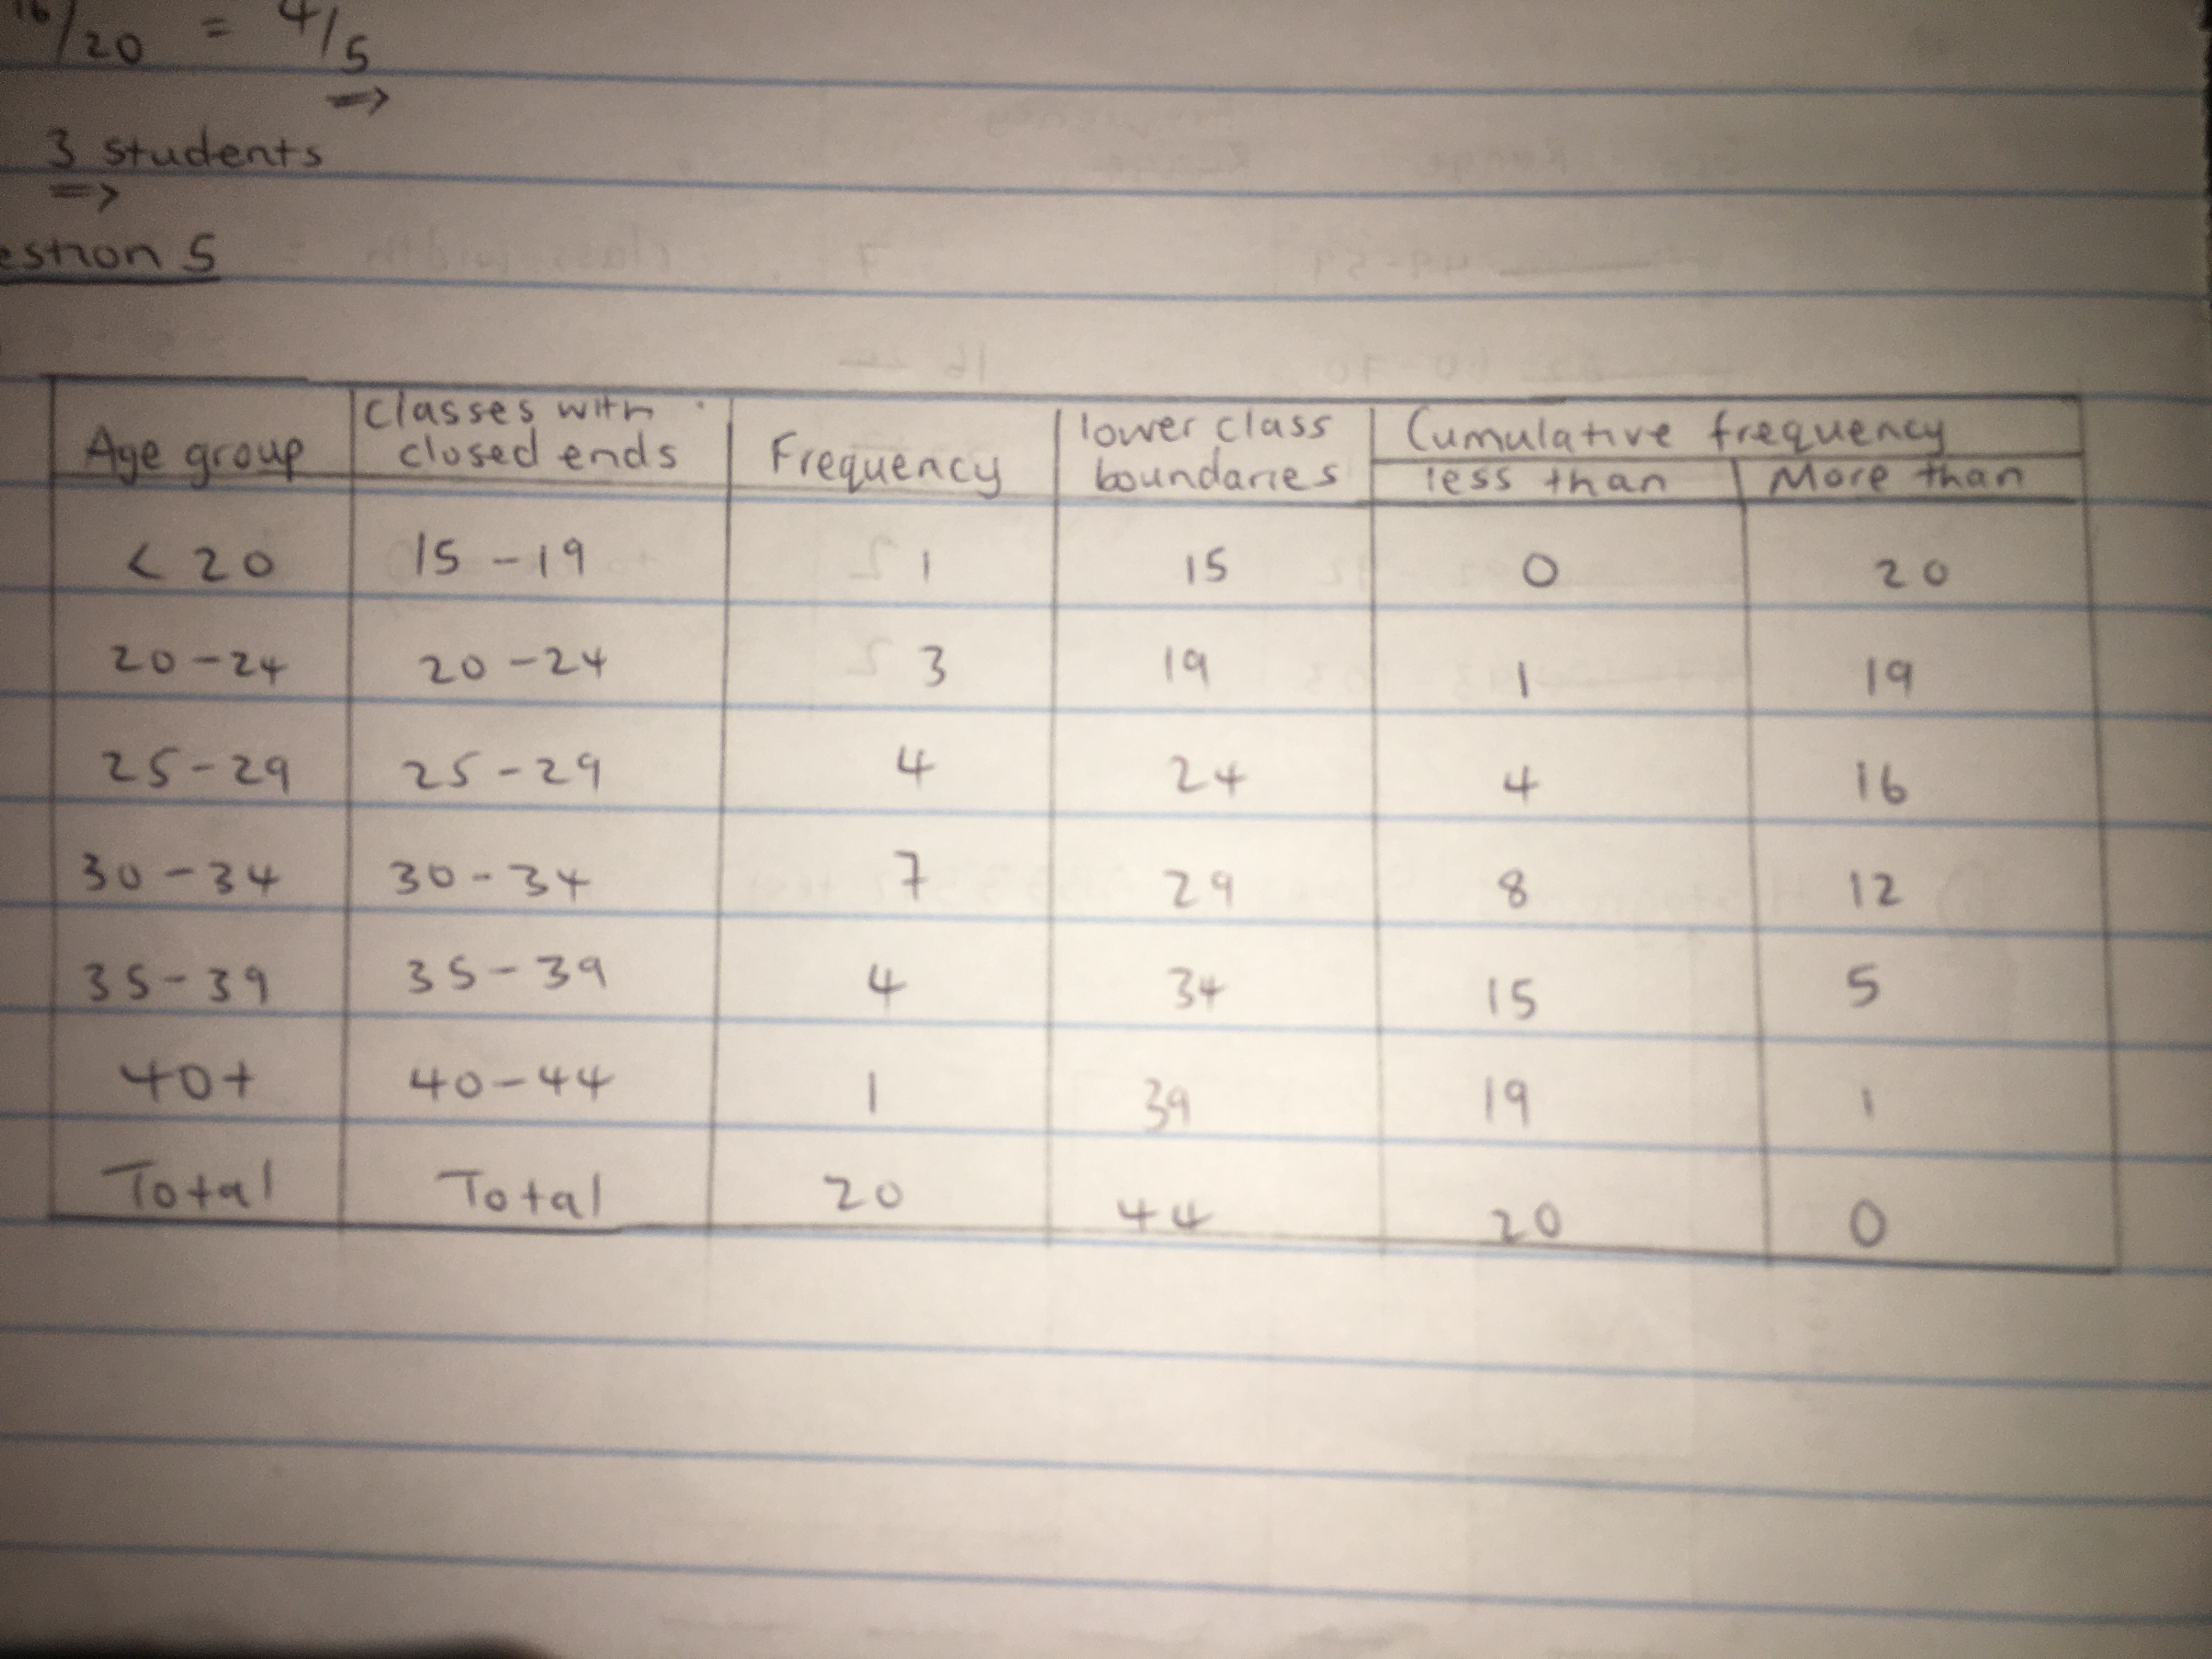 16/20 = 4/5
=>
3 students
=>
estion 5
Age group | Classes with closed ends | Frequency | lower class boundaries | Cumulative frequency
less than | More than
< 20 | 15 - 19 | 1 | 15 | 0 | 20
20 - 24 | 20 - 24 | 3 | 19 | 1 | 19
25 - 29 | 25 - 29 | 4 | 24 | 4 | 16
30 - 34 | 30 - 34 | 7 | 29 | 8 | 12
35 - 39 | 35 - 39 | 4 | 34 | 15 | 5
40+ | 40 - 44 | 1 | 39 | 19 | 1
Total | Total | 20 | 44 | 20 | 0